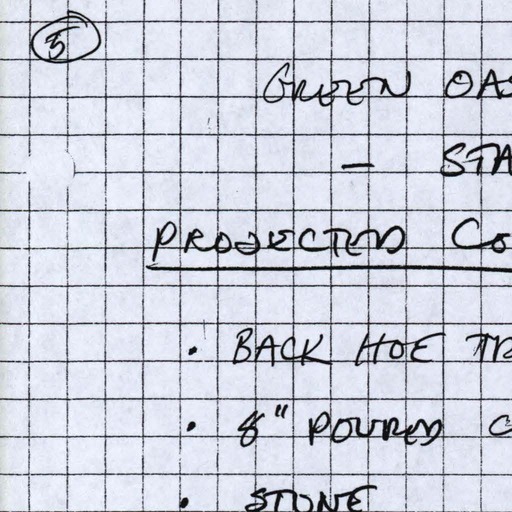 5
GREEN OAS
— STA
PROJECTED CO
• BACK HOE TR
• 8" POURED C
• STONE